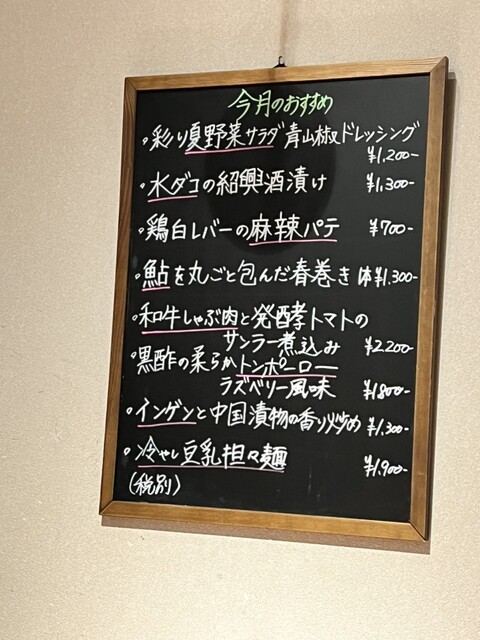 今月のおすすめ
。彩り夏野菜サラダ 青山椒ドレッシング
¥1,200-
。水ダコの紹興酒漬け ¥1,300-
。鶏白レバーの麻辣パテ ¥700-
。鮎を丸ごと包んだ春巻き 1本¥1,300-
。和牛しゃぶ肉と発酵トマトの
サンラー煮込み ¥2,200-
。黒酢の柔らかトンポーロー
ラズベリー風味 ¥1,800-
。インゲンと中国漬物の香り炒め ¥1,300-
。冷やし豆乳担々麺 ¥1,900-
(税別)